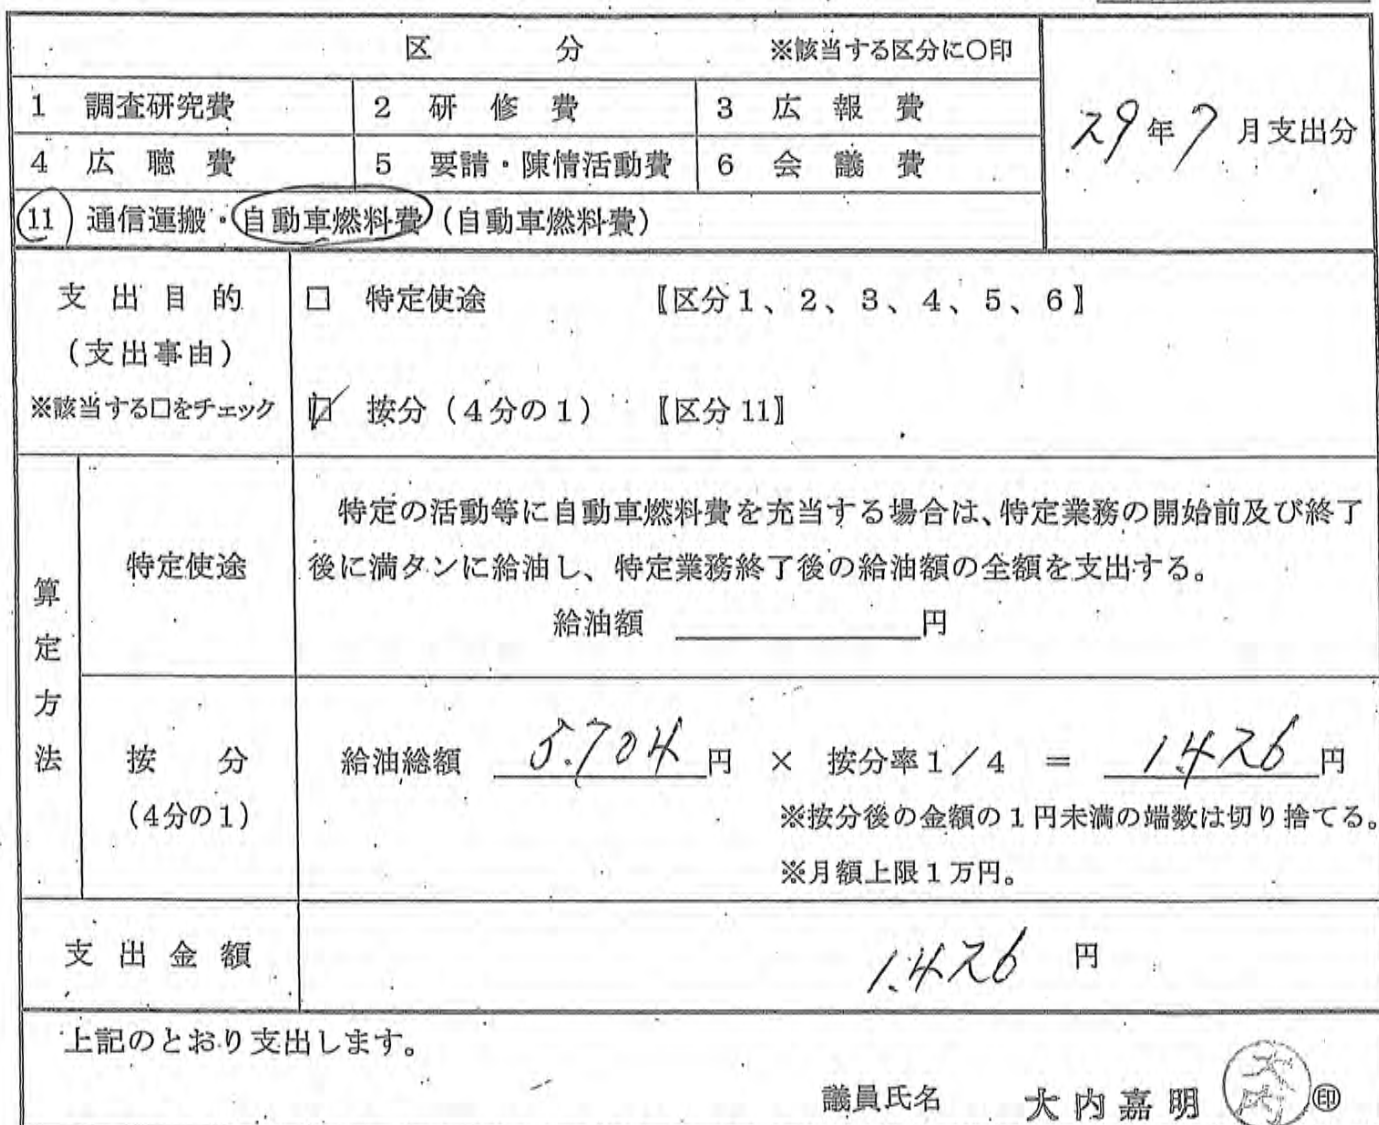 区 分 ※該当する区分に○印
1 調査研究費 2 研修費 3 広報費
29年7月支出分
4 広聴費 5 要請・陳情活動費 6 会議費
11 通信運搬・自動車燃料費(自動車燃料費)
支出目的
(支出事由)
※該当する□をチェック
□ 特定使途 【区分1、2、3、4、5、6】
☑ 按分(4分の1) 【区分11】
算定方法
特定使途
特定の活動等に自動車燃料費を充当する場合は、特定業務の開始前及び終了
後に満タンに給油し、特定業務終了後の給油額の全額を支出する。
給油額 円
按分
(4分の1)
給油総額 5.704円 × 按分率1/4 = 1.426円
※按分後の金額の1円未満の端数は切り捨てる。
※月額上限1万円。
支出金額 1.426円
上記のとおり支出します。
議員氏名 大内嘉明 大内 ㊞